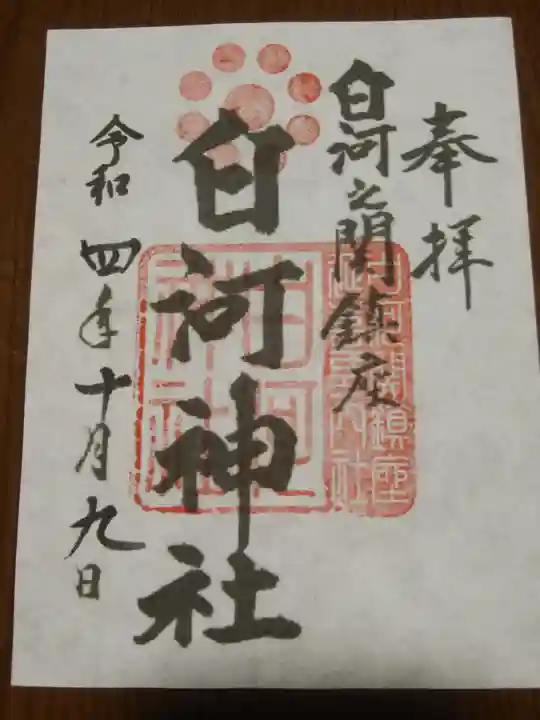 奉拝
白河之関鎮座
白河神社
令和四年十月九日
白河神社